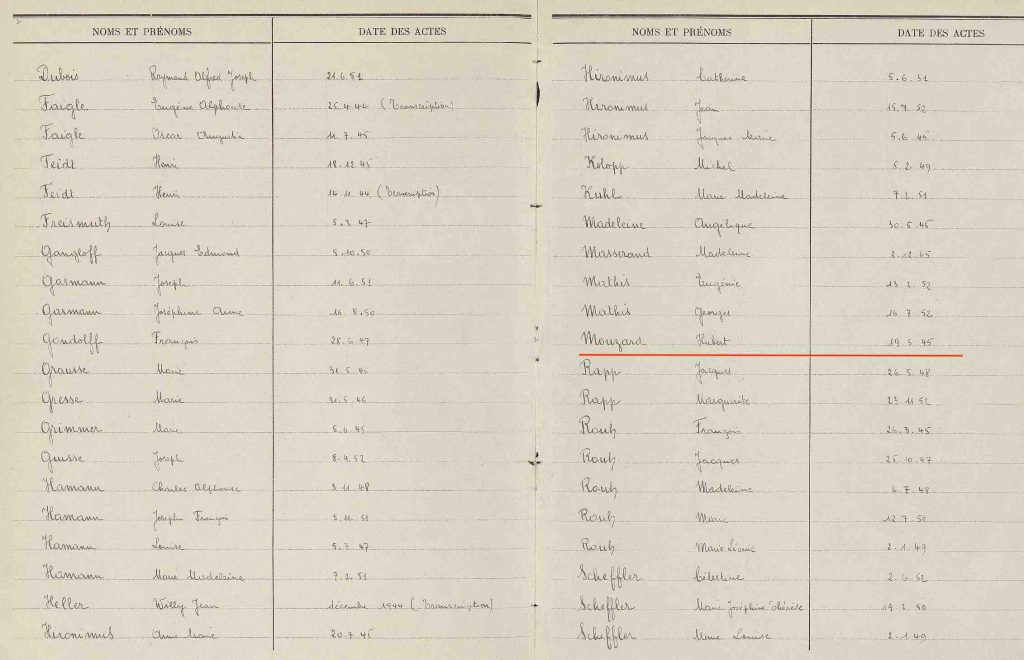 NOMS ET PRÉNOMS DATE DES ACTES
Dubois Raymond Alfred Joseph 21.6.51
Faigle Eugène Alphonse 25.4.44 (Transcription)
Faigle Oscar Augustin 11.7.45
Feidt Henri 18.12.45
Feidt Henri 14.11.44 (Transcription)
Freismuth Louise 5.3.47
Gangloff Jacques Edmond 5.10.50
Gasmann Joseph 11.6.51
Gasmann Joséphine Anne 16.8.50
Gondolff François 28.6.47
Grausse Marie 31.5.46
Gresse Marie 31.5.46
Grimmer Marie 5.6.45
Gusse Joseph 8.4.52
Hamann Charles Alphonse 3.11.48
Hamann Joseph François 5.11.51
Hamann Louise 5.3.47
Hamann Marie Madeleine 7.2.51
Heller Willy Jean décembre 1944 (Transcription)
Hironimus Anne Marie 20.7.45
NOMS ET PRÉNOMS DATE DES ACTES
Hironimus Catherine 5.6.51
Hironimus Jean 15.7.52
Hironimus Jacques Marie 5.6.45
Kolopp Michel 5.2.49
Kuhl Marie Madeleine 7.2.51
Madeleine Angélique 30.5.45
Masserand Madeleine 2.12.65
Mathis Eugénie 13.2.52
Mathis Georges 16.7.52
Mouzard Hubert 19.5.45
Rapp Jacques 26.5.48
Rapp Marguerite 23.11.52
Rouh François 26.3.45
Rouh Jacques 25.10.47
Rouh Madeleine 6.7.48
Rouh Marie 12.7.50
Rouh Marie Léonie 2.1.49
Scheffler Célestine 2.6.52
Scheffler Marie Joséphine Thérèse 19.2.50
Scheffler Marie Louise 2.1.49